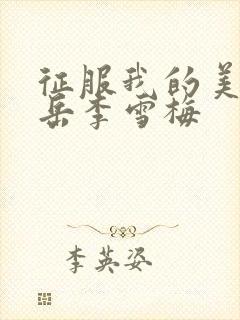 征服我的美
岳李雪梅
李英姿